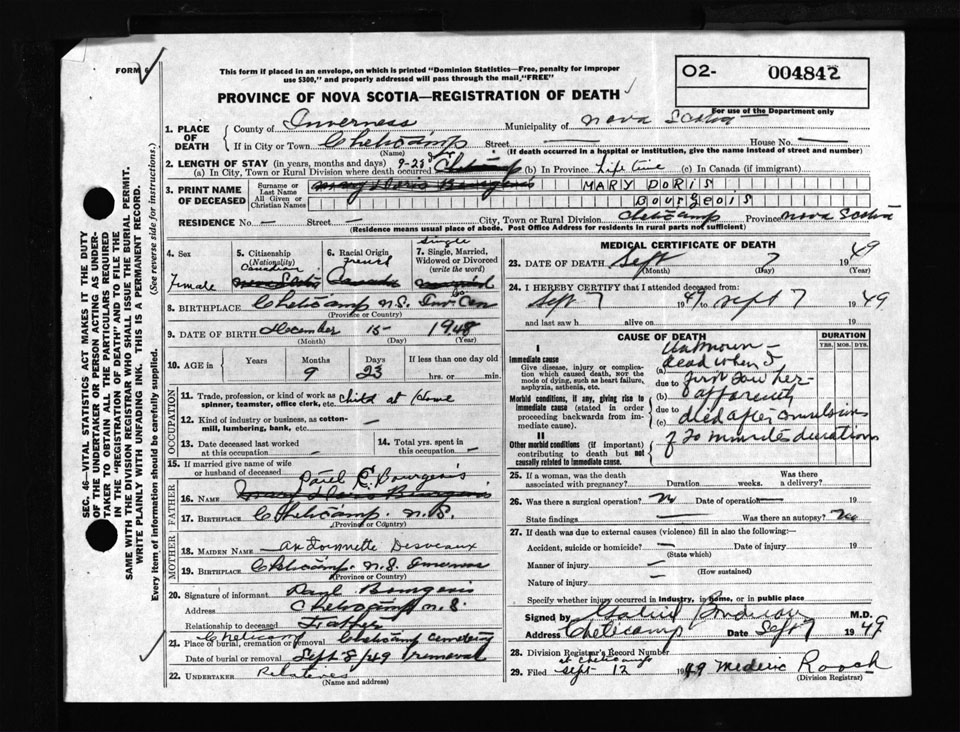 FORM
This form if placed in an envelope, on which is printed "Dominion Statistics—Free, penalty for improper
use $300," and properly addressed will pass through the mail, "FREE"
PROVINCE OF NOVA SCOTIA—REGISTRATION OF DEATH
O2- 004842
For use of the Department only
1. PLACE OF DEATH
County of Inverness Municipality of Nova Scotia
If in City or Town Cheticamp Street House No.
(Name) (If death occurred in a hospital or institution, give the name instead of street and number)
2. LENGTH OF STAY (in years, months and days) 9-23
(a) In City, Town or Rural Division where death occurred Cheticamp (b) In Province Life time (c) In Canada (if immigrant)
3. PRINT NAME OF DECEASED
Surname or Last Name Mary Doris Bourgeois MARY DORIS
All Given or Christian Names BOURGEOIS
RESIDENCE No. — Street — City, Town or Rural Division Cheticamp Province Nova Scotia
(Residence means usual place of abode. Post Office Address for residents in rural parts not sufficient)
SEC. 46—VITAL STATISTICS ACT MAKES IT THE DUTY
OF THE UNDERTAKER OR PERSON ACTING AS UNDER-
TAKER TO OBTAIN ALL THE PARTICULARS REQUIRED
IN THE "REGISTRATION OF DEATH" AND TO FILE THE
SAME WITH THE DIVISION REGISTRAR WHO SHALL ISSUE THE BURIAL PERMIT.
WRITE PLAINLY WITH UNFADING INK. THIS IS A PERMANENT RECORD.
Every item of information should be carefully supplied. (See reverse side for instructions.)
4. Sex
Female
5. Citizenship
(Nationality)
Canadian
Nova Scotia
6. Racial Origin
French
Canadian
Single
7. Single, Married,
Widowed or Divorced
(write the word)
8. BIRTHPLACE Cheticamp N.S. Inv. Co.
(Province or Country)
9. DATE OF BIRTH December 15 1948
(Month) (Day) (Year)
10. AGE in
Years Months Days If less than one day old
9 23 hrs. or min.
OCCUPATION
11. Trade, profession, or kind of work as
spinner, teamster, office clerk, etc. child at Home
12. Kind of industry or business, as cotton-
mill, lumbering, bank, etc. —
13. Date deceased last worked
at this occupation —
14. Total yrs. spent in
this occupation —
15. If married give name of wife
or husband of deceased
FATHER
Paul E. Bourgeois
16. NAME Mary Doris Bourgeois
17. BIRTHPLACE Cheticamp. N.S.
(Province or Country)
MOTHER
18. MAIDEN NAME Antoinnette Desveaux
19. BIRTHPLACE Cheticamp. N.S. Inverness
(Province or Country)
20. Signature of informant Paul Bourgeois
Address Cheticamp N.S.
Relationship to deceased Father
21. Place of burial, cremation or removal Cheticamp Cheticamp cemetery
Date of burial or removal Sept 8/49 removal
22. UNDERTAKER Relatives
(Name and address)
MEDICAL CERTIFICATE OF DEATH
23. DATE OF DEATH Sept 7 1949
(Month) (Day) (Year)
24. I HEREBY CERTIFY that I attended deceased from:
Sept 7 1949 to Sept 7 1949
and last saw h alive on 19
CAUSE OF DEATH
DURATION
YRS. MOS. DYS.
I
Immediate cause
Give disease, injury or complica-
tion which caused death, NOT the
mode of dying, such as heart failure,
asphyxia, asthenia, etc.
Morbid conditions, if any, giving rise to
immediate cause (stated in order
proceeding backwards from im-
mediate cause).
II
Other morbid conditions (if important)
contributing to death but not
causally related to immediate cause.
Unknown —
(a) dead when I
due to first saw her —
(b) apparently
due to
(c) died after convulsions
of 20 minutes duration
25. If a woman, was the death
associated with pregnancy? Duration weeks. Was there
a delivery?
26. Was there a surgical operation? No Date of operation 19
State findings — Was there an autopsy? No
27. If death was due to external causes (violence) fill in also the following:
Accident, suicide or homicide? — Date of injury 19
(State which)
Manner of injury —
(How sustained)
Nature of injury —
Specify whether injury occurred in industry, in home, or in public place
Signed by M.D.
Address Cheticamp Date Sept 7 1949
28. Division Registrar's Record Number
at Cheticamp
29. Filed Sept 12 1949 Mederic Roach
(Division Registrar)